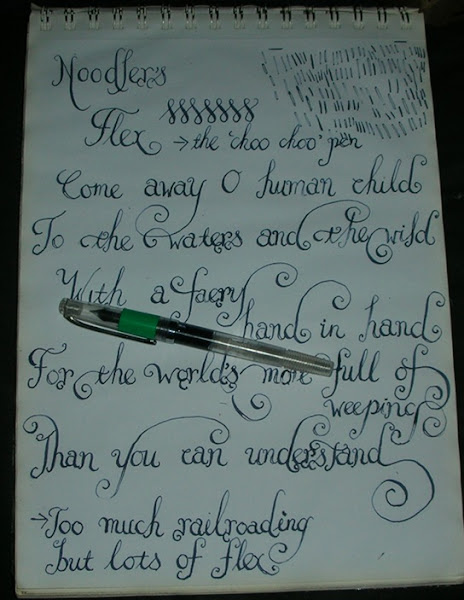 Noodlers
Flex → the 'choo choo' pen
Come away O human child
To the waters and the wild
With a faery
hand in hand
For the world's more full of
weeping
Than you can understand
→ Too much railroading
but lots of flex